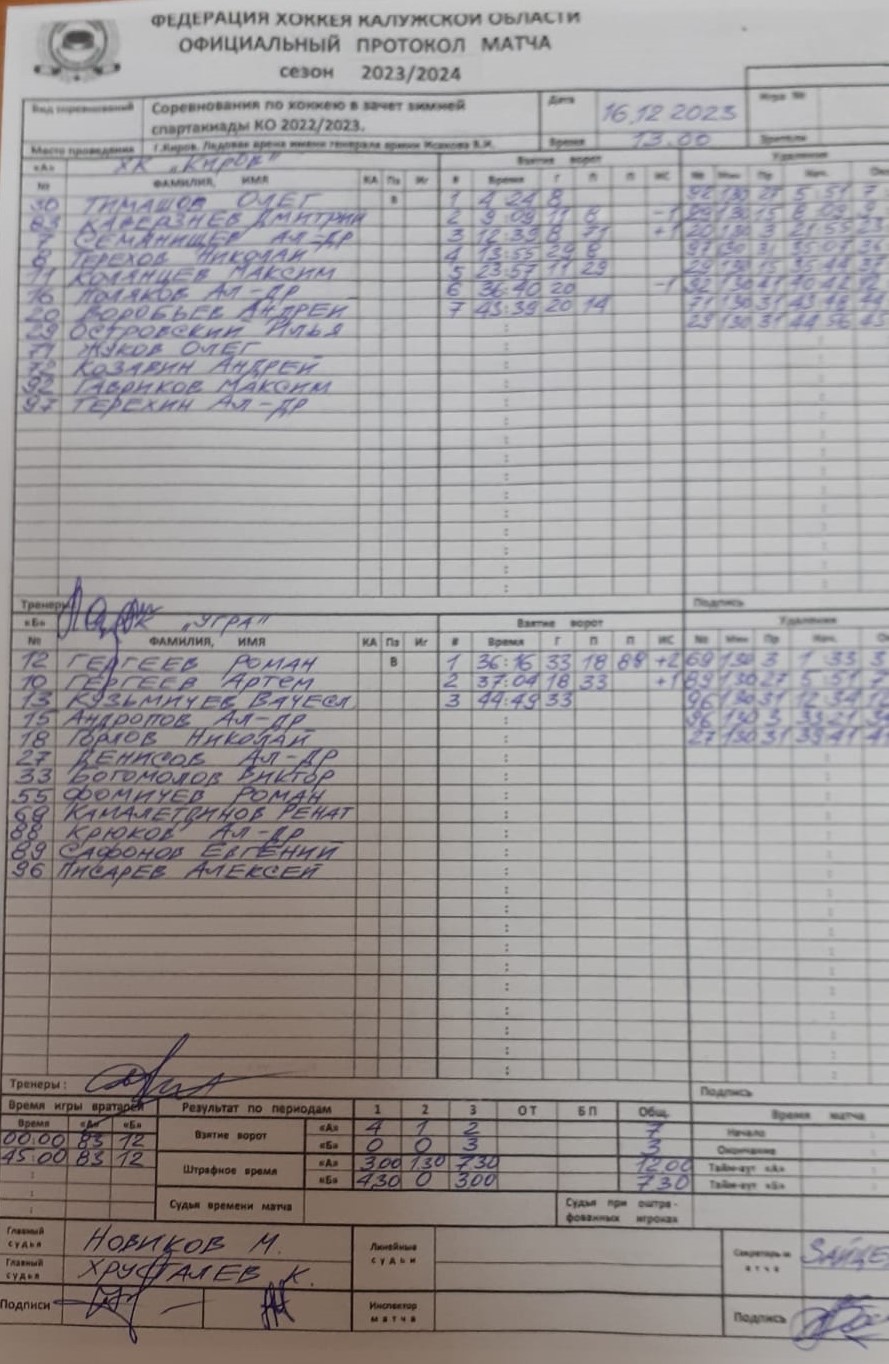 ФЕДЕРАЦИЯ ХОККЕЯ КАЛУЖСКОЙ ОБЛАСТИ
ОФИЦИАЛЬНЫЙ ПРОТОКОЛ МАТЧА
сезон 2023/2024
Вид соревнований Соревнования по хоккею в зачет зимней спартакиады КО 2022/2023. Дата 16.12.2023 Игра №
Место проведения г.Киров. Ледовая арена имени генерала армии Исакова В.И. Время 13.00 Зрители
«А» ХК „Киров" Взятие ворот Удаления
№ ФАМИЛИЯ, ИМЯ КА Пз Иг # Время Г П П ИС № Мин Пр Нач.
30 ТИМАШОВ ОЛЕГ В 1 4 24 8 92 130 27 5 51 7
83 ДМИТРИЙ 2 9:09 11 8 -1
7 СЕМАНИЩЕВ АЛ-ДР 3 12:39 8 71 +1
8 ТЕРЕХОВ НИКОЛАЙ 4 13:55 29 8
11 КОЛАНЦЕВ МАКСИМ 5 23:57 11 29
16 ПОЛЯКОВ АЛ-ДР 6 36:40 20 -1
20 ВОРОБЬЕВ АНДРЕЙ 7 43:39 20 14 71 130 31
29 ОСТРОВСКИЙ ИЛЬЯ 29 130 31 44 56 45
71 ЖУКОВ ОЛЕГ
КОЗАВИН АНДРЕЙ
92 ГАВРИКОВ МАКСИМ
97 ТЕРЕХИН АЛ-ДР
Тренеры Подпись
«Б» ХК „УГРА" Взятие ворот Удаления
№ ФАМИЛИЯ, ИМЯ КА Пз Иг # Время Г П П ИС № Мин Пр Нач.
12 ГЕРГЕЕВ РОМАН В 1 36:16 33 18 88 +2 69 130 3 1 33 3
10 ГЕРГЕЕВ АРТЕМ 2 37:04 18 33 +1 89 130 27 5 51 7
13 КУЗЬМИЧЕВ ВАЧЕСЛ 3 44:49 33 96 130 31 12 34
15 АНДРОПОВ АЛ-ДР 96 130 3 33 21
18 ГОРЛОВ НИКОЛАЙ 27 130 31 39 41 41
27 ДЕНИСОВ АЛ-ДР
33 БОГОМОЛОВ ВИКТОР
55 ФОМИЧЕВ РОМАН
69 КАМАЛЕТДИНОВ РЕНАТ
88 КРЮКОВ АЛ-ДР
89 САФОНОВ ЕВГЕНИЙ
96 ПИСАРЕВ АЛЕКСЕЙ
Тренеры: Подпись
Время игры вратарей Результат по периодам 1 2 3 ОТ БП Общ. Время матча
Время «А» «Б» Взятие ворот «А» 4 1 2 7 Начало
00:00 83 12 «Б» 0 0 3 3 Окончание
45:00 83 12 Штрафное время «А» 300 130 730 1200 Тайм-аут «А»
«Б» 430 0 300 730 Тайм-аут «Б»
Судья времени матча Судья при оштрафованных игроках
Главный судья НОВИКОВ М. Линейные судьи Секретарь матча
Главный судья ХРУСТАЛЕВ К.
Подписи Инспектор матча Подпись